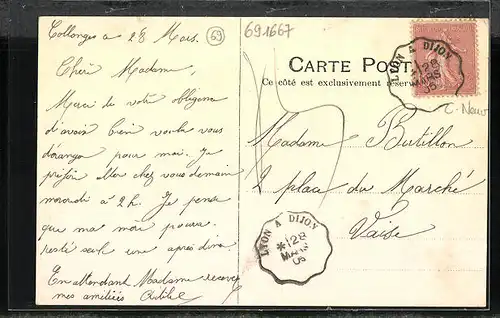 Collonges le 28 Mars.
69
691667
Chère Madame,
Merci de votre obligeance
d'avoir bien voulu vous
déranger pour moi. Je
aller chez vous demain
à 2h. Je pense
que ma mère pourra
resté seule une après dîner.
En attendant Madame recevez
mes amitiés
CARTE POSTALE
Ce côté est exclusivement réservé
LYON A DIJON
28
MARS
05
C. Neuv
Madame Butillon
2 place du Marché
Vaise
LYON A DIJON
*128
MARS
05